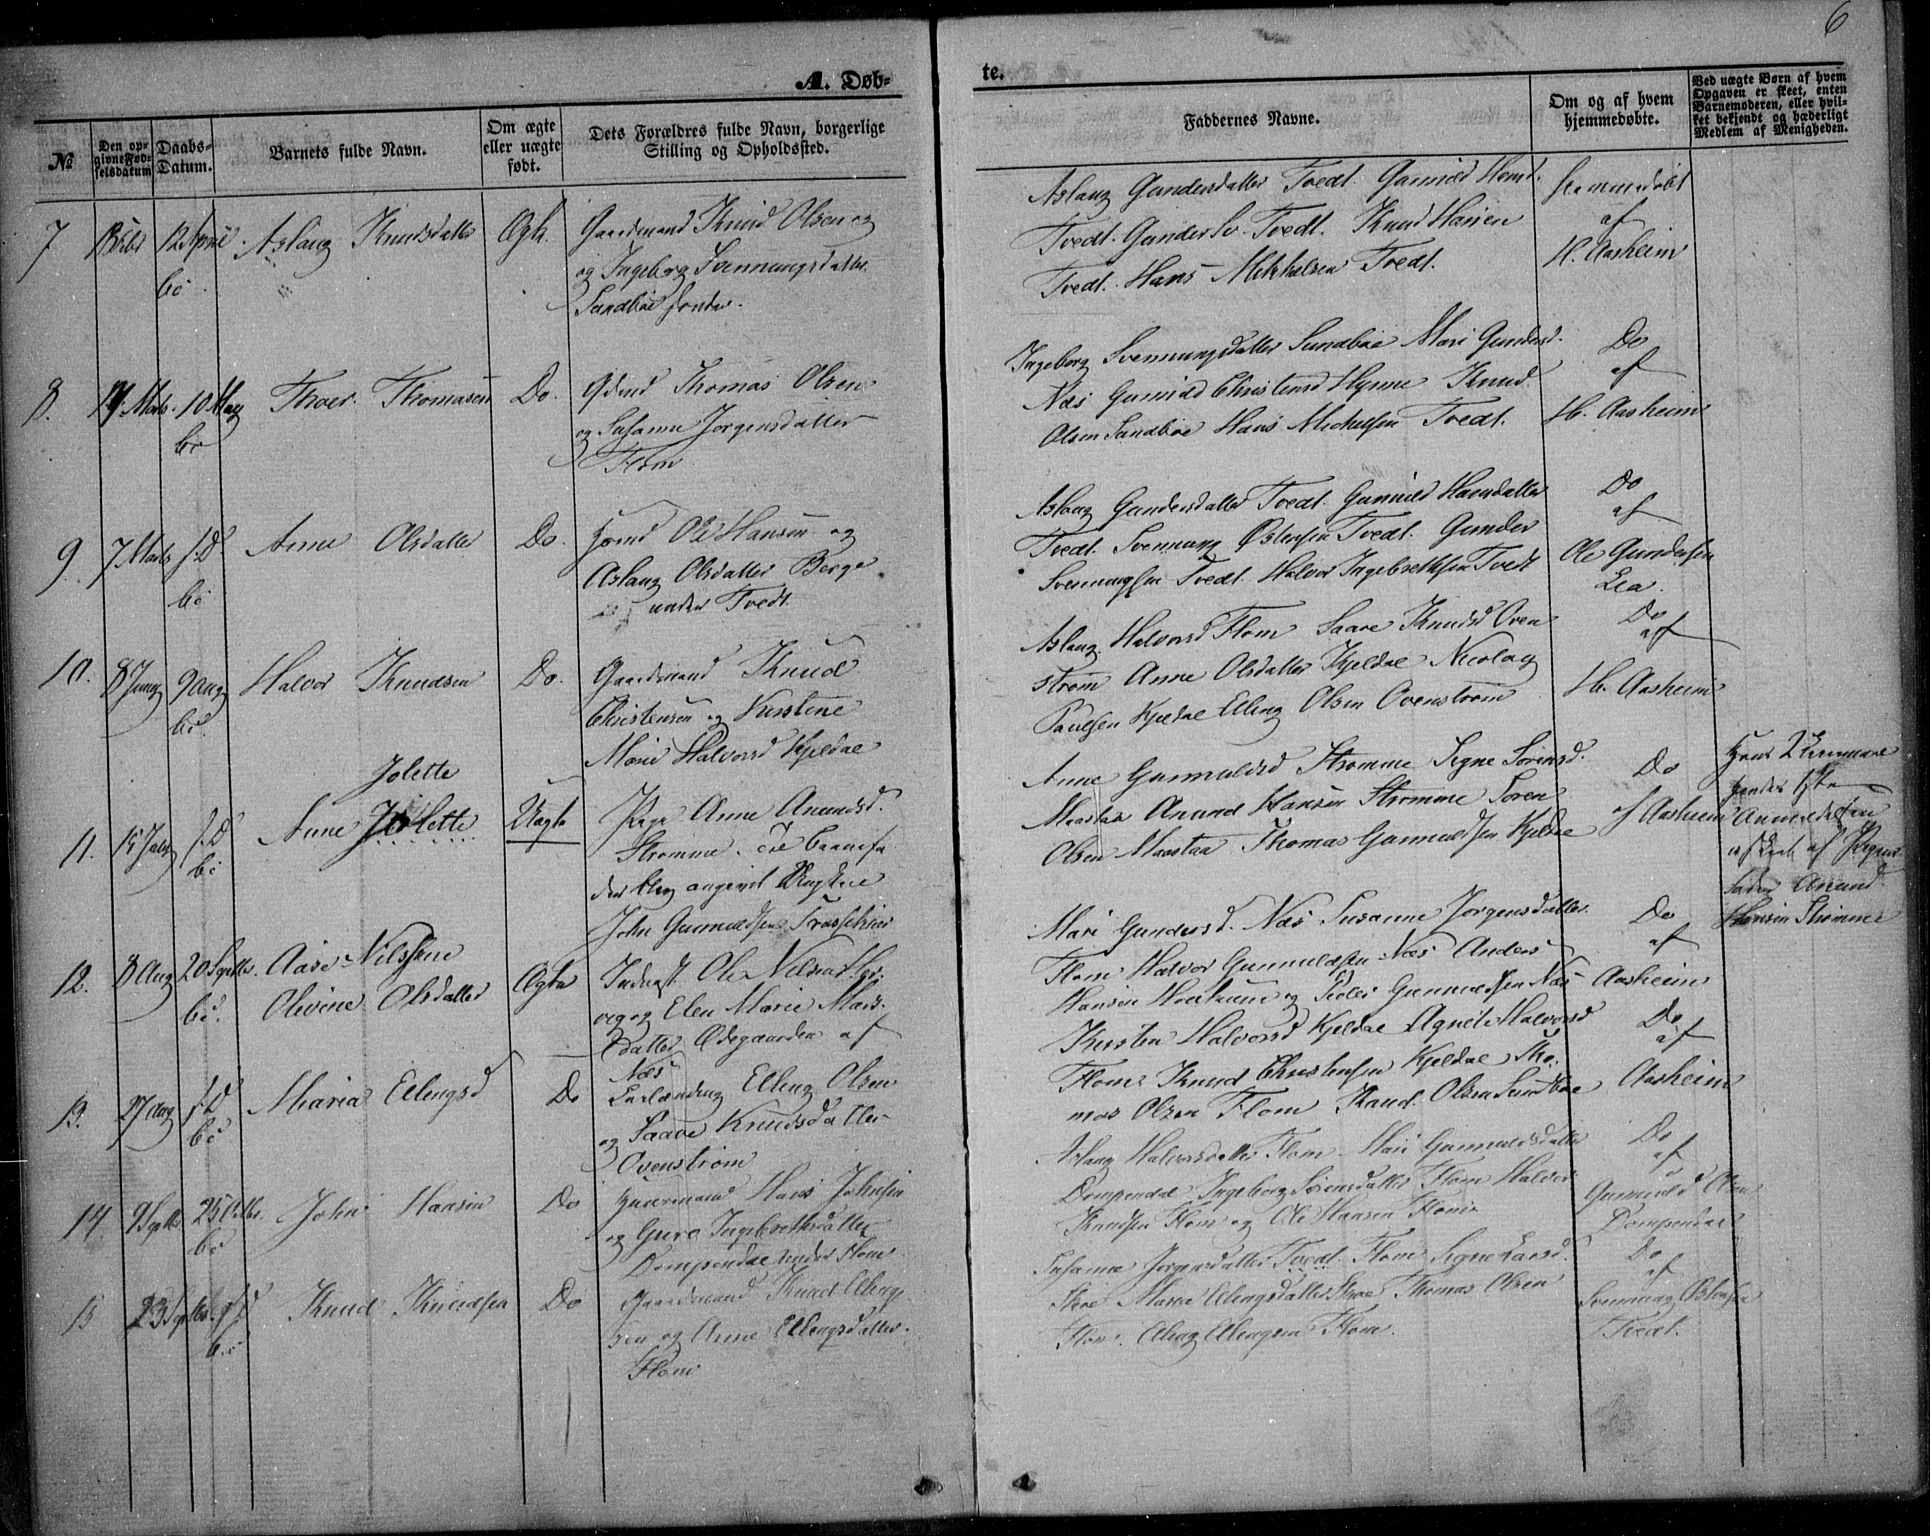 6
A. Døb-
te.
No
Den op-
givne Fød-
selsdatum
Daabs-
Datum.
Barnets fulde Navn.
Om ægte
eller uægte
født.
Dets Forældres fulde Navn, borgerlige
Stilling og Opholdssted.
Faddernes Navne.
Om og af hvem
hjemmedøbte.
Ved uægte Børn af hvem
Opgaven er skeet, enten
Barnemoderen, eller hvil-
ket bekjendt og hæderligt
Medlem af Menigheden.
7
12 April
Aslaug Knudsdatter
Ægte
Gaardmand Knud Olsen og
og Ingeborg Svennungsdatter
Sundbøe
Aslaug Gundersdatter Tvedt. Gunnild Hansd.
Tvedt. Gunder Sv. Tvedt. Knud Hansen
Tvedt. Hans Mikkelsen Tvedt.
hjemmedøbt
af
H. Aasheim
8.
14 Marts
10 May
Thoer Thomasen
Do.
Thomas Olsen
og Susanne Jorgensdatter
Flom
Ingeborg Svennungsdatter Sundbøe Mari Gundersd.
Næs Gunnild Christensd Knud
Olsen Sundbøe Hans Michelsen Tvedt.
Do
af
H. Aasheim
9.
7 Marts
s. D
Anne Olsdatter
Do.
Ole Hansen og
Aslaug Olsdatter Berge
under Tvedt.
Aslaug Gundersdatter Tvedt. Gunnild Hansdatter
Tvedt. Svennung Østensen Tvedt. Gunder
Svennungsen Tvedt. Halvor Ingebretsen Tvedt
Do
af
Ole Gundersen
Lia.
10.
8 Juny
9 Aug
Halvor Knudsen
Do.
Gaardmand Knud
Christensen og Kirstine
Marie Halvorsd Kjeldal
Aslaug Halvorsd Flom Saave Knudsd Oven
strøm Anne Olsdatter Kjeldal Nicolay
Paulsen Kjeldal Elling Olsen Ovenstrøm
Do
af
H. Aasheim
11.
15 July
s. D
Jolette
Anne Jolette
Uægte
Pige Anne Anundsd.
Strømme. Til Barnefa
der blev angivet Ungkarl
John Gunnuldsen
Anne Gunnuldsd Strømme Signe Sørensd.
Maastad Anund Hansen Strømme Søren
Olsen Maastad Thomas Gunnuldsen Kjeldal
Do
af Aasheim
Anmeldelsen
er skeet af Pigens
Fader Anund
Hansen Strømme
12.
8 Aug
20 Septbr.
Aase Nilsine
Olivine Olsdatter
Ægte
Inderst Ole Nilsen
og Elen Marie Mads
datter Ødegaarden af
Næs
Mari Gundersd. Næs Susanne Jorgensdatter
Flom Halvor Gunnuldsen Næs Anders
Hansen og Peder Gunnuldsen Næs
Do
af
Aasheim
13.
27 Aug
s. D
Maria Ellingsd
Do
Elling Olsen
og Saave Knudsdatter
Ovenstrøm
Kirsten Halvorsd Kjeldal Agnete Halvorsd
Flom Knud Christensen Kjeldal Tho
mas Olsen Flom Knud Olsen Sundbøe
Do
af
Aasheim
14.
9 Septbr
25 Octbr.
John Hansen
Do
Huusmand Hans Johnsen
og Guro Ingebretsdatter
Dompendal under Flom
Aslaug Halvorsdatter Flom Mari Gunnuldsdatter
Dompendal Ingeborg Sørensdatter Flom Halvor
Knudsen Flom og Ole Hansen Flom
Do
af
Gunnuld Olsen
Dompendal
15
23 Septbr.
s. D
Knud Knudsen
Do
Gaardmand Knud Elling
sen og Anne Ellingsdatter
Flom
Susanne Jorgensdatter Tvedt. Flom Signe Larsd.
Maria Ellingsdatter Thomas Olsen
Flom. Elling Ellingsen Flom.
Do
af
Svennung Østensen
Tvedt.